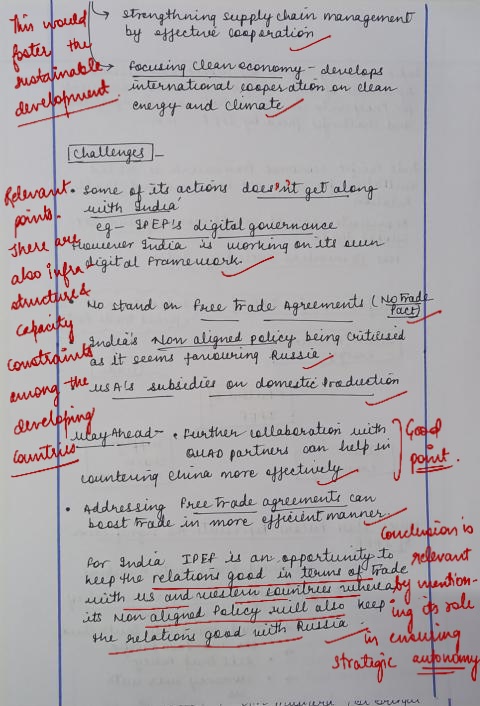 strengthning supply chain management
by effective cooperation
Focusing clean economy - develops
international cooperation on clean
energy and climate
This would
foster the
sustainable
development.
Challenges -
• Some of its actions doesn't get along
with India
eg - IPEF's digital governance
However India is working on its own
digital Framework.
No stand on Free Trade Agreements (No Trade
Pact)
India's Non aligned policy being critisised
as it seems favouring Russia.
USA's subsidies on domestic Production
Relevant
points.
There are
also infra-
structure &
capacity
constraints
among the
developing
countries.
Way Ahead - • Further collaboration with
QUAD partners can help in
countering China more effectively
Good
point.
• Addressing Free trade agreements can
boost trade in more efficient manner.
For India IPEF is an opportunity to
keep the relations good in terms of trade
with US and western countries whereas
its Non aligned Policy will also keep
the relations good with Russia.
Conclusion is
relevant
by mention-
ing its role
in ensuring
strategic autonomy